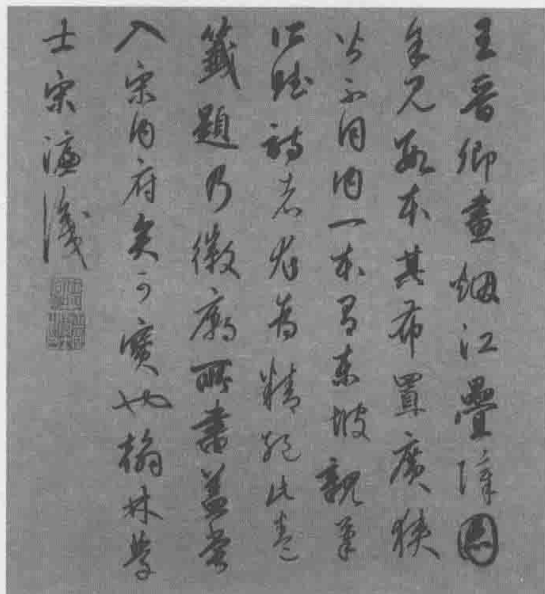 王晉卿畫烟江疊嶂圖
余見數本其布置廣狹
皆不同内一本有東坡親筆
所賦詩者尤為精絶此卷
籤題乃徽廟所書蓋嘗
入宋内府矣可寶也翰林學
士宋濂識